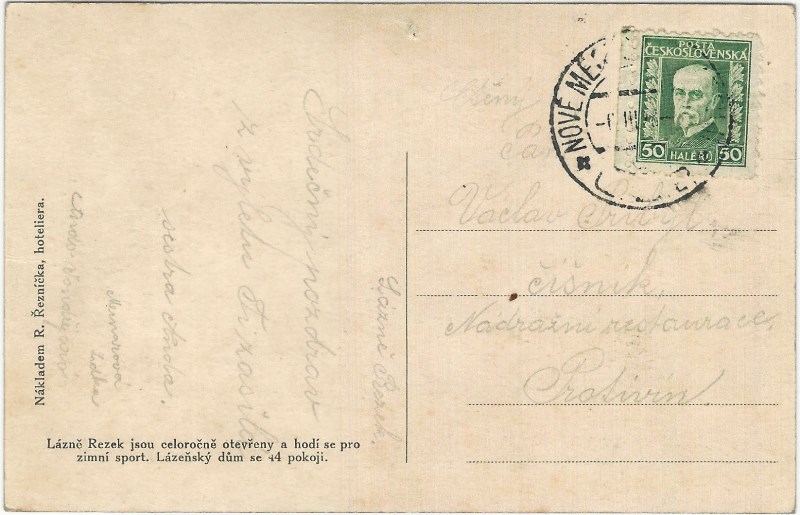 Nákladem R. Řezníčka, hoteliera.
Srdečný pozdrav
z výletu
sestra Anda.
Zdka
Lázně Rezek.
Lázně Rezek jsou celoročně otevřeny a hodí se pro
zimní sport. Lázeňský dům se 44 pokoji.
NOVÉ MĚ
POŠTA
ČESKOSLOVENSKÁ
50 HALÉŘŮ 50
Václav
číšník
Nádražní restaurace
Protivín